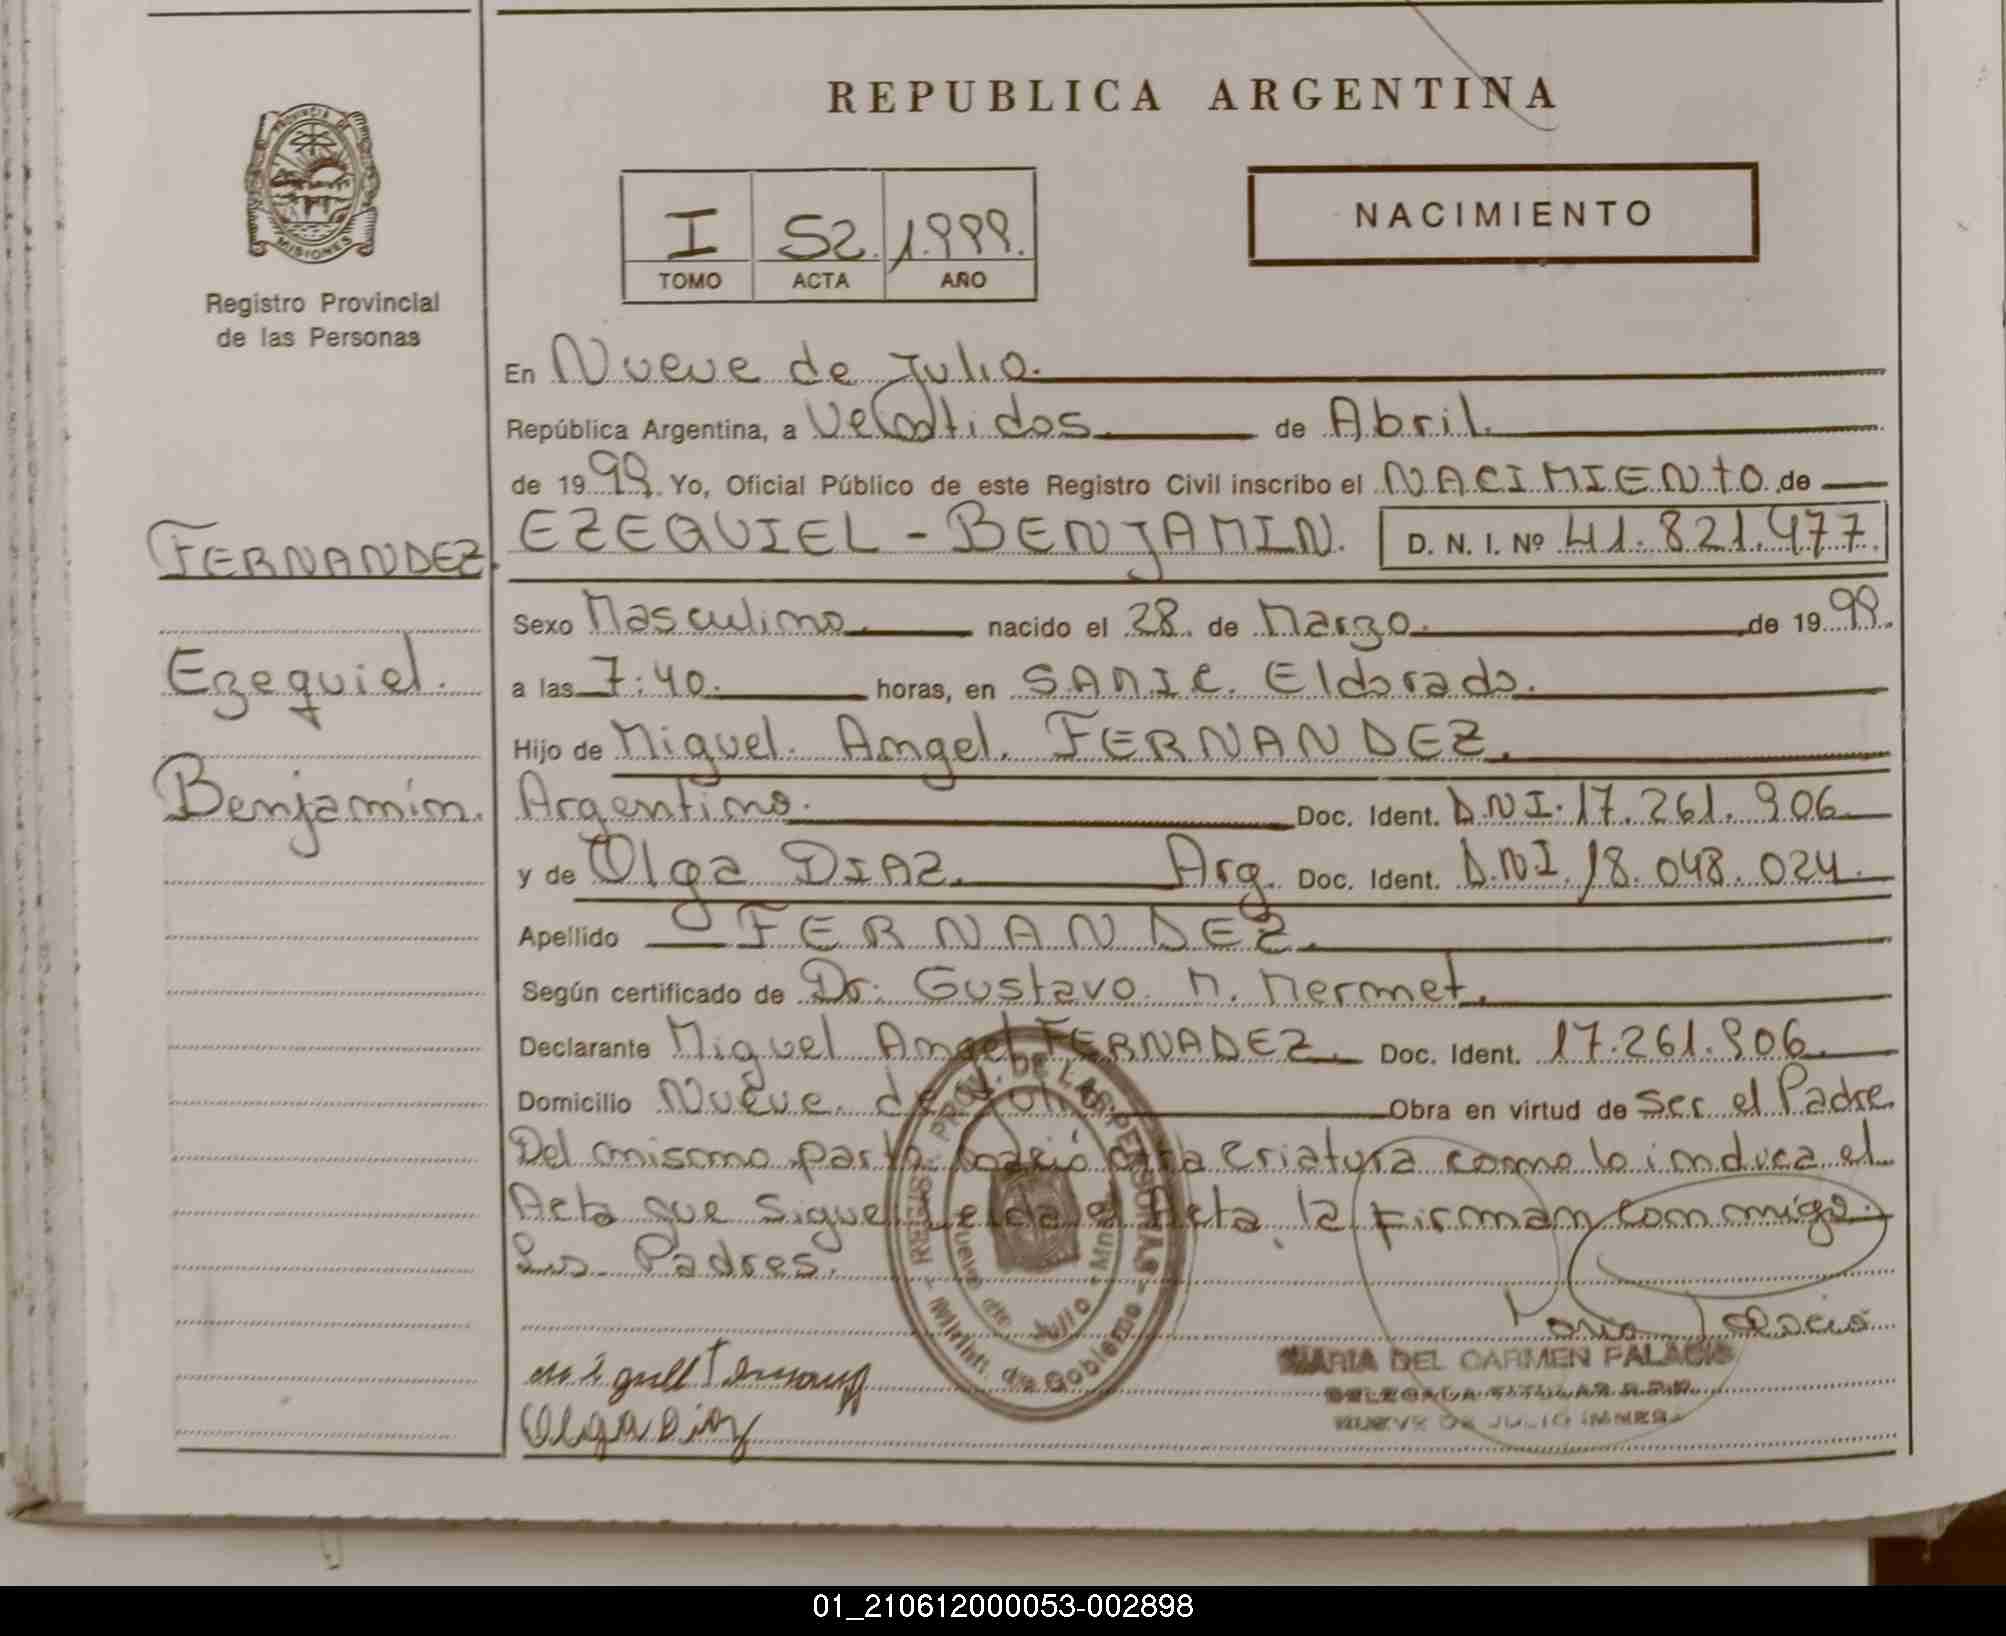 REPUBLICA ARGENTINA
PROVINCIA DE
MISIONES
Registro Provincial
de las Personas
I S2. 1.999.
TOMO ACTA AÑO
NACIMIENTO
En Nueve de Julio.
República Argentina, a Veintidos de Abril.
de 1999. Yo, Oficial Público de este Registro Civil inscribo el NACIMIENTO de
FERNANDEZ.
Ezequiel.
Benjamín.
EZEQUIEL - BENJAMIN. D. N. I. Nº 41.821.477.
Sexo Masculino. nacido el 28. de Marzo. de 1999.
a las 7:40. horas, en SAMIC. Eldorado.
Hijo de Miguel. Angel. FERNANDEZ.
Argentino. Doc. Ident. D.N.I. 17.261.906.
y de Olga DIAZ. Arg. Doc. Ident. D.N.I. 18.048.024.
Apellido FERNANDEZ.
Según certificado de Dr. Gustavo. M. Mermet.
Declarante Miguel Angel FERNADEZ. Doc. Ident. 17.261.906.
Domicilio Nueve. de Julio. Obra en virtud de Ser el Padre.
Del mismo parto nació otra criatura como lo induca el
Acta que sigue. Leida el Acta, la firman conmigo.
Los Padres.
REGIST. PROV. DE LAS PERSONAS
Nueve de Julio - Mnes
Minist. de Gobierno
Olga Diaz
MARIA DEL CARMEN PALACIO
DELEGADA TITULAR R.P.P.
NUEVE DE JULIO (MNES.)
01_210612000053-002898